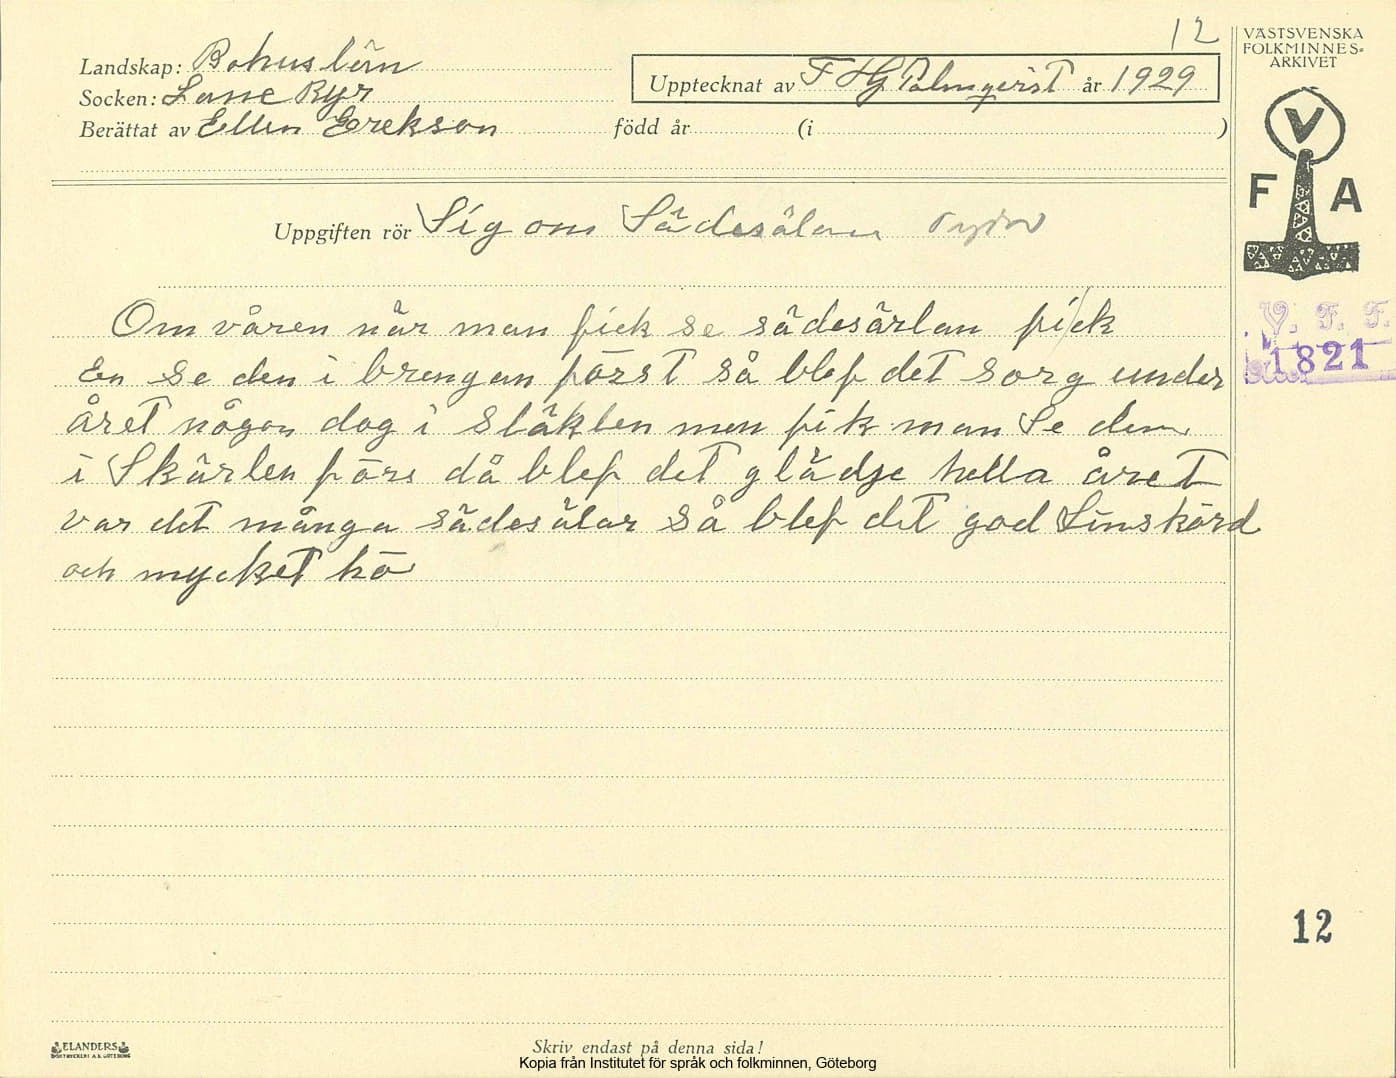 12
VÄSTSVENSKA
FOLKMINNES-
ARKIVET
Landskap: Bohuslän
Socken: Lane Ryr
Upptecknat av F HG Palmqvist år 1929
Berättat av Ellen Erekson född år (i )
V
F A
Uppgiften rör Sägom Sädesälan
V. F. F.
1821
Om våren når man fick se sädesärlan fick
En se den i brengan försT så blef deT sorg under
åreT någon dag i släkten men fik man Se den
i Skärlen förs då blef deT glädje hella åreT
var det många sädesälar så blef deT god Linskörd
och myckeT hö
12
ELANDERS
BOKTRYCKERI A.B. GÖTEBORG
Skriv endast på denna sida!
Kopia från Institutet för språk och folkminnen, Göteborg